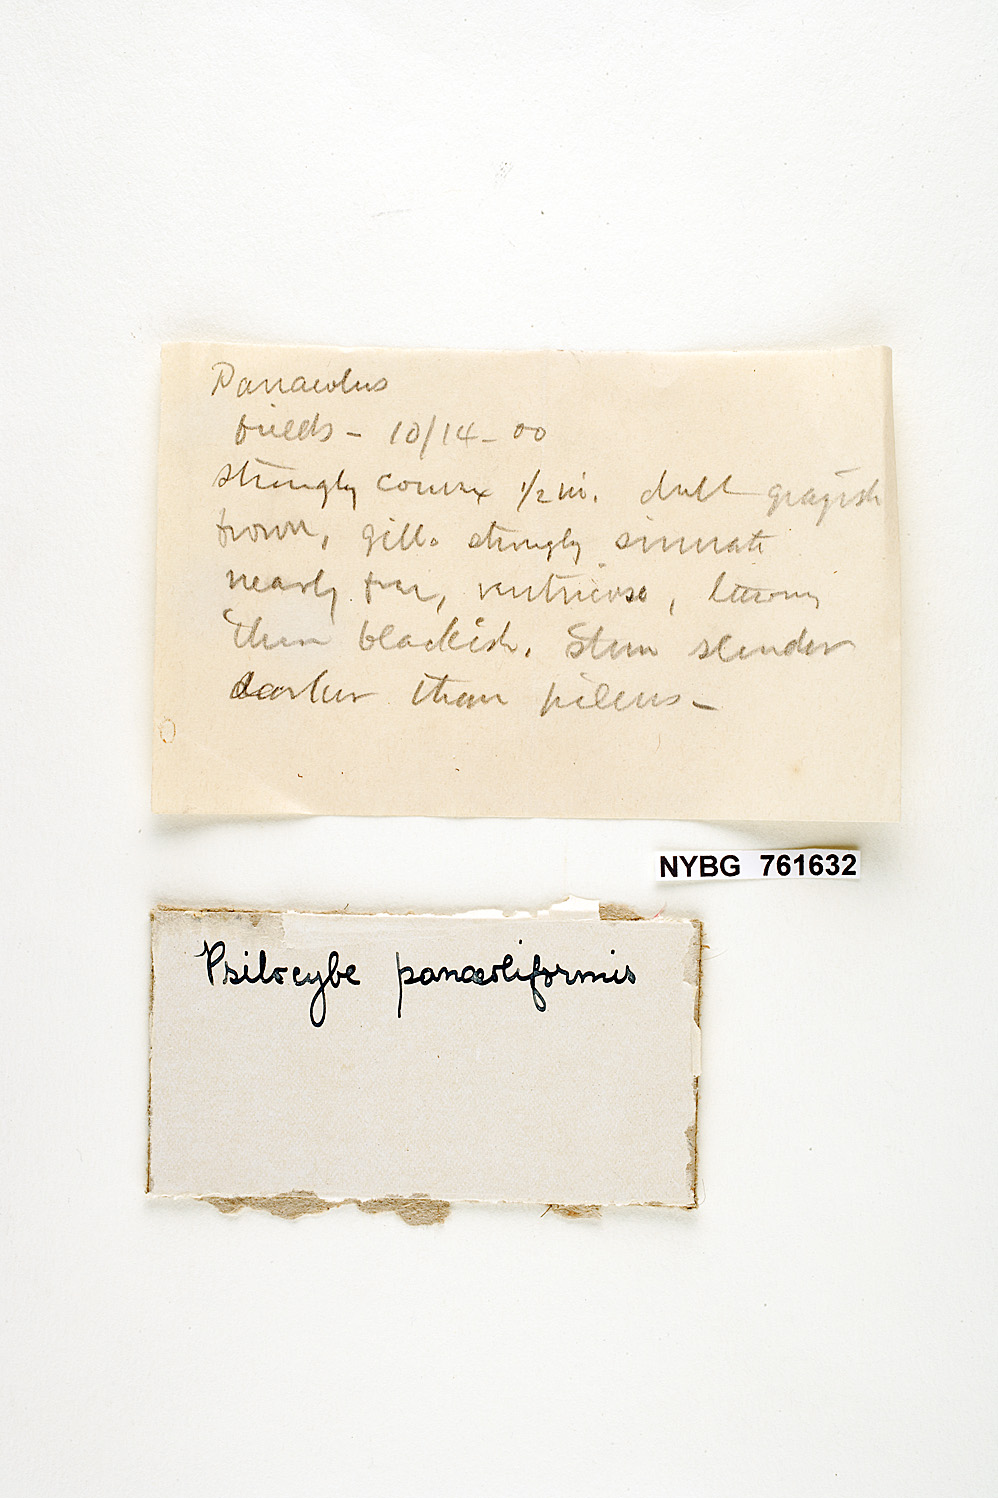 Panaeolus
fields - 10/14-00
strongly convex 1/2 in. dull grayish
brown, gills strongly sinuate
nearly free, ventricose,
then blackish. Stem slender
darker than pileus -
NYBG 761632
Psilocybe panaeoliformis